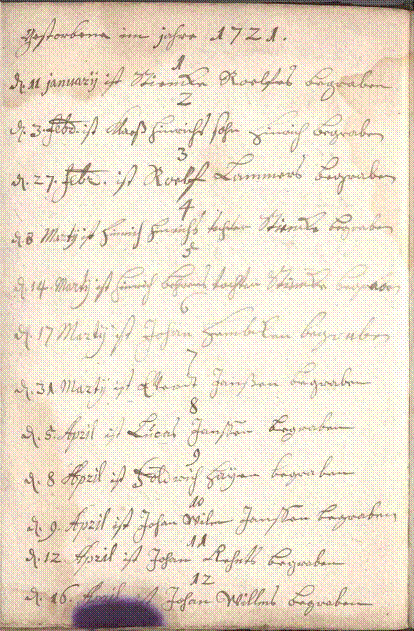 Gestorbene im jahre 1721.
1
d. 11 january ist Stiencke Roelfes begraben
2
d. 3. Febr. ist Claeß Hinrichs sohn Hinrich begraben
3
d. 27. Febr. ist Roelf Lammers begraben
4
d. 8 Martij ist Hinrich Hinrichs tochter Stiencke begraben
5
d. 14. Martij ist Hinrich Behrens tochter Stiencke begraben
6
d. 17 Martij ist Johan begraben
7
d. 31 Martij ist Evert Janßen begraben
8
d. 5. April ist Lucas Janssen begraben
9
d. 8 April ist begraben
10
d. 9. April ist Johan Wilm Janssen begraben
11
d. 12. April ist Johan begraben
12
d. 16. April ist Johan Willms begraben